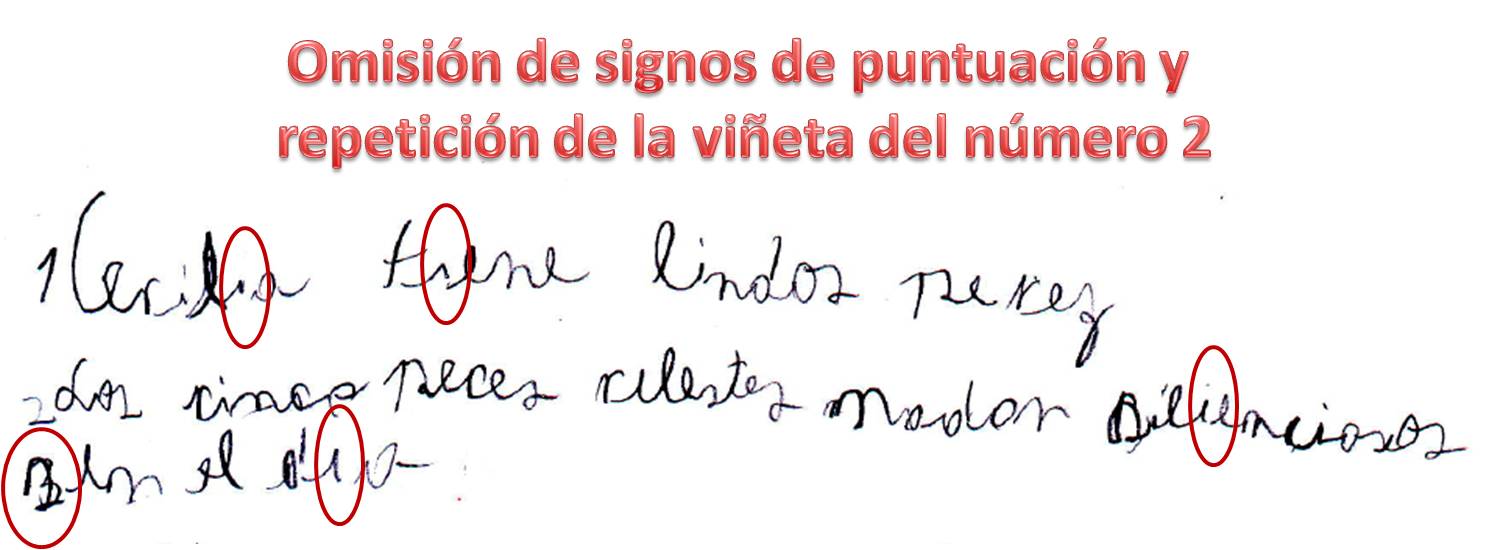 Omisión de signos de puntuación y
repetición de la viñeta del número 2
1 Cecilia tiene lindos peces
2 Los cinco peces celestes nadan silienciosos
en el día